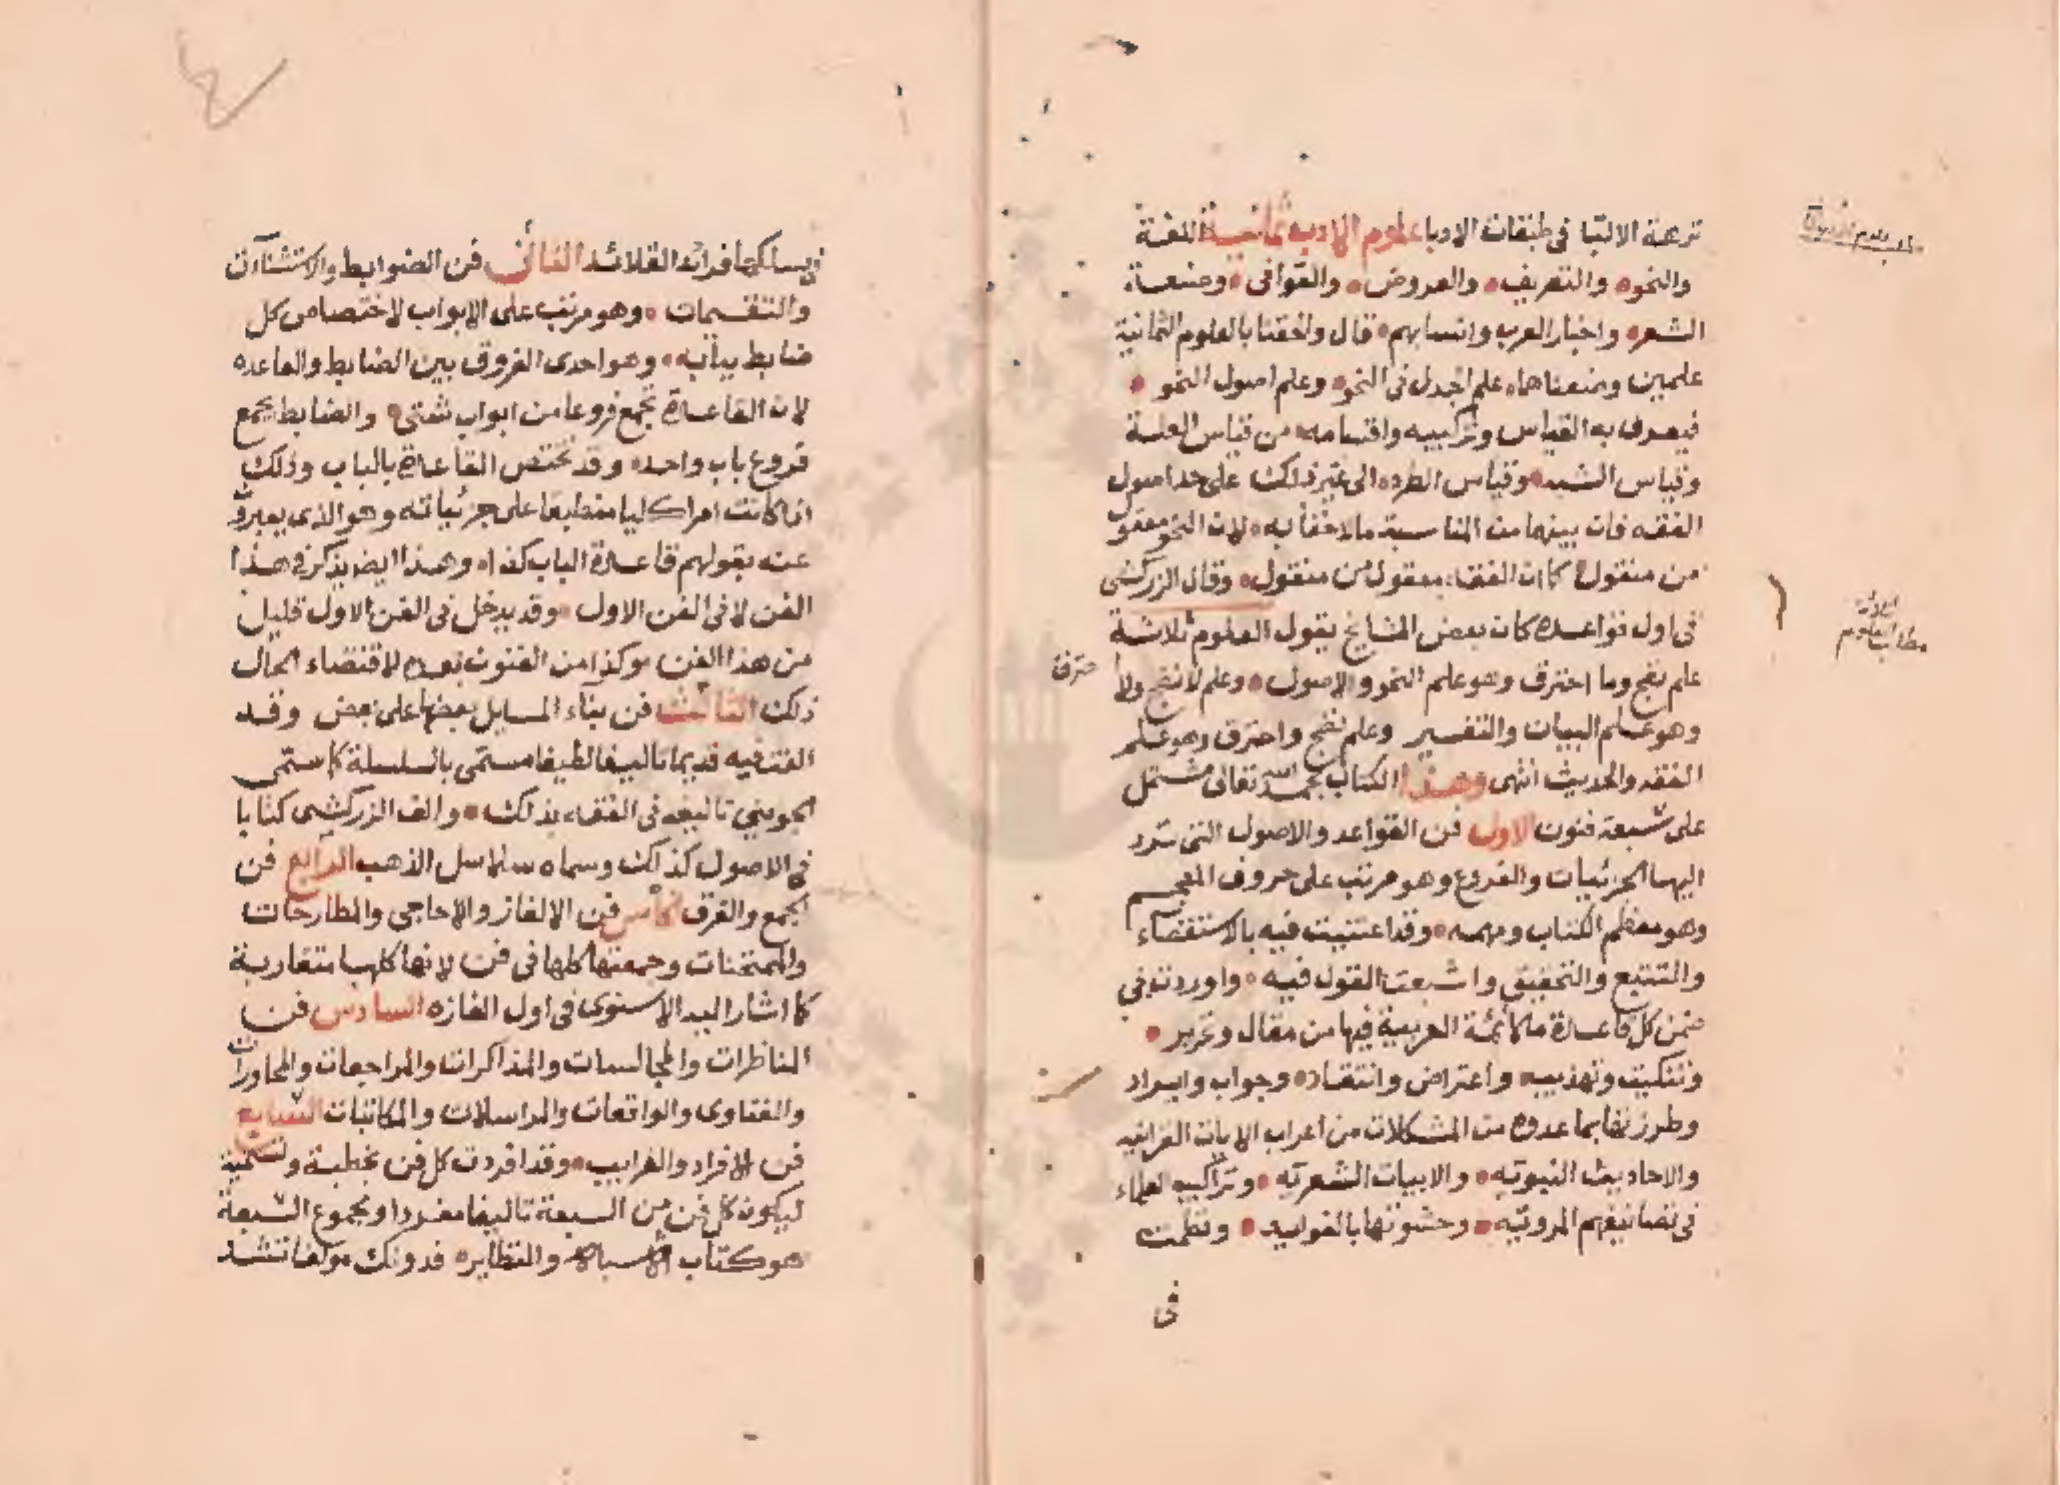 نزهة الالبا فى طبقات الادبا علوم الادب ثمانية اللغة
والنحو والتصريف والعروض والقوافى وصنعة
الشعر واخبار العرب وانسابهم قال والحقنا بالعلوم الثمانية
علمين وضعناهما علم الجدل فى النحو وعلم اصول النحو
فيعرف به القياس وتركيبه واقسامه من قياس العلة
وقياس الشبه وقياس الطرد الى غير ذلك على حد اصول
الفقه فان بينهما من المناسبة ما لا خفا به لان النحو معقول
من منقول كما ان الفقه معقول من منقول وقال الزركشى
فى اول قواعده كان بعض المشايخ يقول العلوم ثلاثة
علم نضج وما احترق وهو علم النحو والاصول وعلم لا نضج ولا
احترق
وهو علم البيان والتفسير وعلم نضج واحترق وهو علم
الفقه والحديث انتهى وهذا الكتاب بحمد الله تعالى مشتمل
على سبعة فنون الاول فن القواعد والاصول التى ترد
اليها الجزئيات والفروع وهو مرتب على حروف المعجم
وهو معظم الكتاب ومهمه وقد اعتنيت فيه بالاستقصاء
والتتبع والتحقيق واشبعت القول فيه واوردت فى
ضمن كل قاعدة ما لائمة العربية فيها من مقال وتحرير
وتنكيت وتهذيب واعتراض وانتقاد وجواب وايراد
وطرزتها بما عدوه من المشكلات من اعراب الايات القرانيه
والاحاديث النبويه والابيات الشعريه وتراكيب العلماء
فى تصانيفهم المرويه وحشوتها بالفوايد ونظمت
فى
فى سلكها فرائد القلائد الثانى فن الضوابط والاستثناآت
والتقسيمات وهو مرتب على الابواب لاختصاص كل
ضابط ببابه وهو احدى الفروق بين الضابط والقاعده
لان القاعدة تجمع فروعا من ابواب شتى والضابط يجمع
فروع باب واحد وقد تختص القاعدة بالباب وذلك
اذا كانت امرا كليا منطبقا على جزئياته وهو الذى يعبرون
عنه بقولهم قاعدة الباب كذا وهذا ايضا يذكر فى هذا
الفن لا فى الفن الاول وقد يدخل فى الفن الاول قليل
من هذا الفن وكذا من الفنون بعده لاقتضاء الحال
ذلك الثالث فن بناء المسايل بعضها على بعض وقد
الفت فيه قديما تاليفا لطيفا مسمى بالسلسلة كما سمى
الجوينى تاليفه فى الفقه بذلك والف الزركشى كتابا
فى الاصول كذلك وسماه سلاسل الذهب الرابع فن
الجمع والفرق الخامس فن الالغاز والاحاجى والمطارحات
والممتحنات وجمعتها كلها فى فن لانها كلها متقاربة
كما اشار اليه الاسنوى فى اول الغازه السادس فن
المناظرات والمجالسات والمذاكرات والمراجعات والمحاورات
والفتاوى والواقعات والمراسلات والمكاتبات السابع
فن الافراد والغرايب وقد افردت كل فن بخطبة وتسمية
ليكون كل فن من السبعة تاليفا مفردا ومجموع السبعة
هو كتاب الاشباه والنظاير فدونك مولفا تشد
العلوم الثلاثة